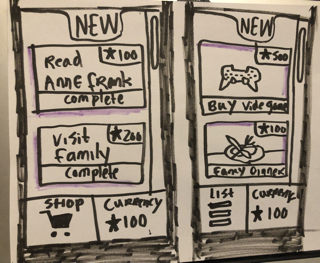 NEW
★100
Read
Anne Frank
complete
★200
Visit
Family
Complete
SHOP
Currency
★100
NEW
★500
Buy vide game
★100
Fancy Dinner
List
Currency
★100